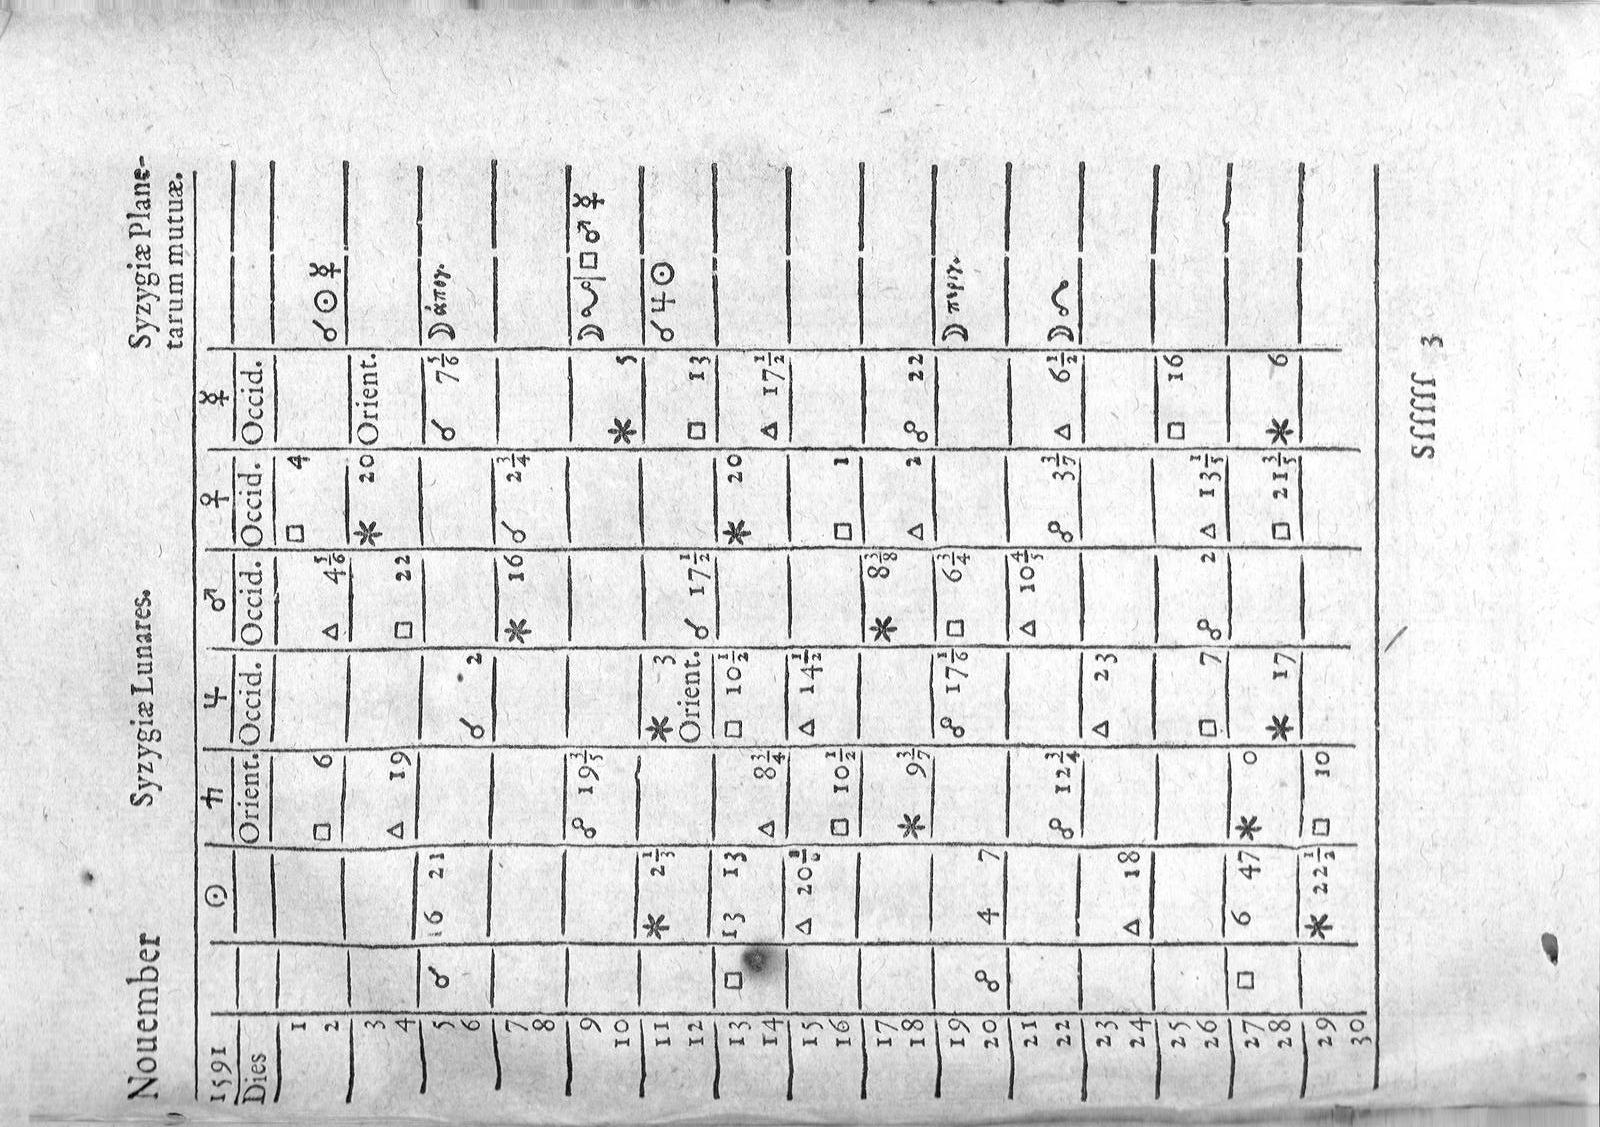 Nouember Syzygiæ Lunares. Syzygiæ Plane-
tarum mutuæ.
1591 ☉ ♄ ♃ ♂ ♀ ☿
Dies Orient. Occid. Occid. Occid. Occid.
1 □ 4
2 □ 6 △ 4 5/6 ☌ ☉ ☿
3 ✶ 20 Orient.
4 △ 19 □ 22
5 ☌ 16 21 ☌ 7 5/6 ☽ ἀπογ.
6 ☌ 2
7 ✶ 16 ☌ 2 3/4
8
9 ☍ 19 3/5 ☽ ☋ | □ ♂ ☿
10 ✶ 5
11 ✶ 2 1/3 ✶ 3 ☌ ♃ ☉
12 Orient. ☌ 17 1/2 □ 13
13 □ 13 13 □ 10 1/2 ✶ 20
14 △ 8 3/4 △ 17 1/2
15 △ 20 △ 14 1/2
16 □ 10 1/2 □ 1
17 ✶ 8 3/8
18 ✶ 9 3/7 △ 2 ☍ 22
19 ☍ 17 1/6 □ 6 3/4 ☽ περιγ.
20 ☍ 4 7
21 △ 10 4/5
22 ☍ 12 3/4 ☍ 3 3/7 △ 6 1/2 ☽ ☊
23 △ 23
24 △ 18
25 □ 16
26 □ 7 ☍ 2 △ 13 1/5
27 □ 6 47 ✶ 0
28 ✶ 17 □ 21 3/5 ✶ 6
29 ✶ 22 1/2 □ 10
30
Sſſſſſſ 3